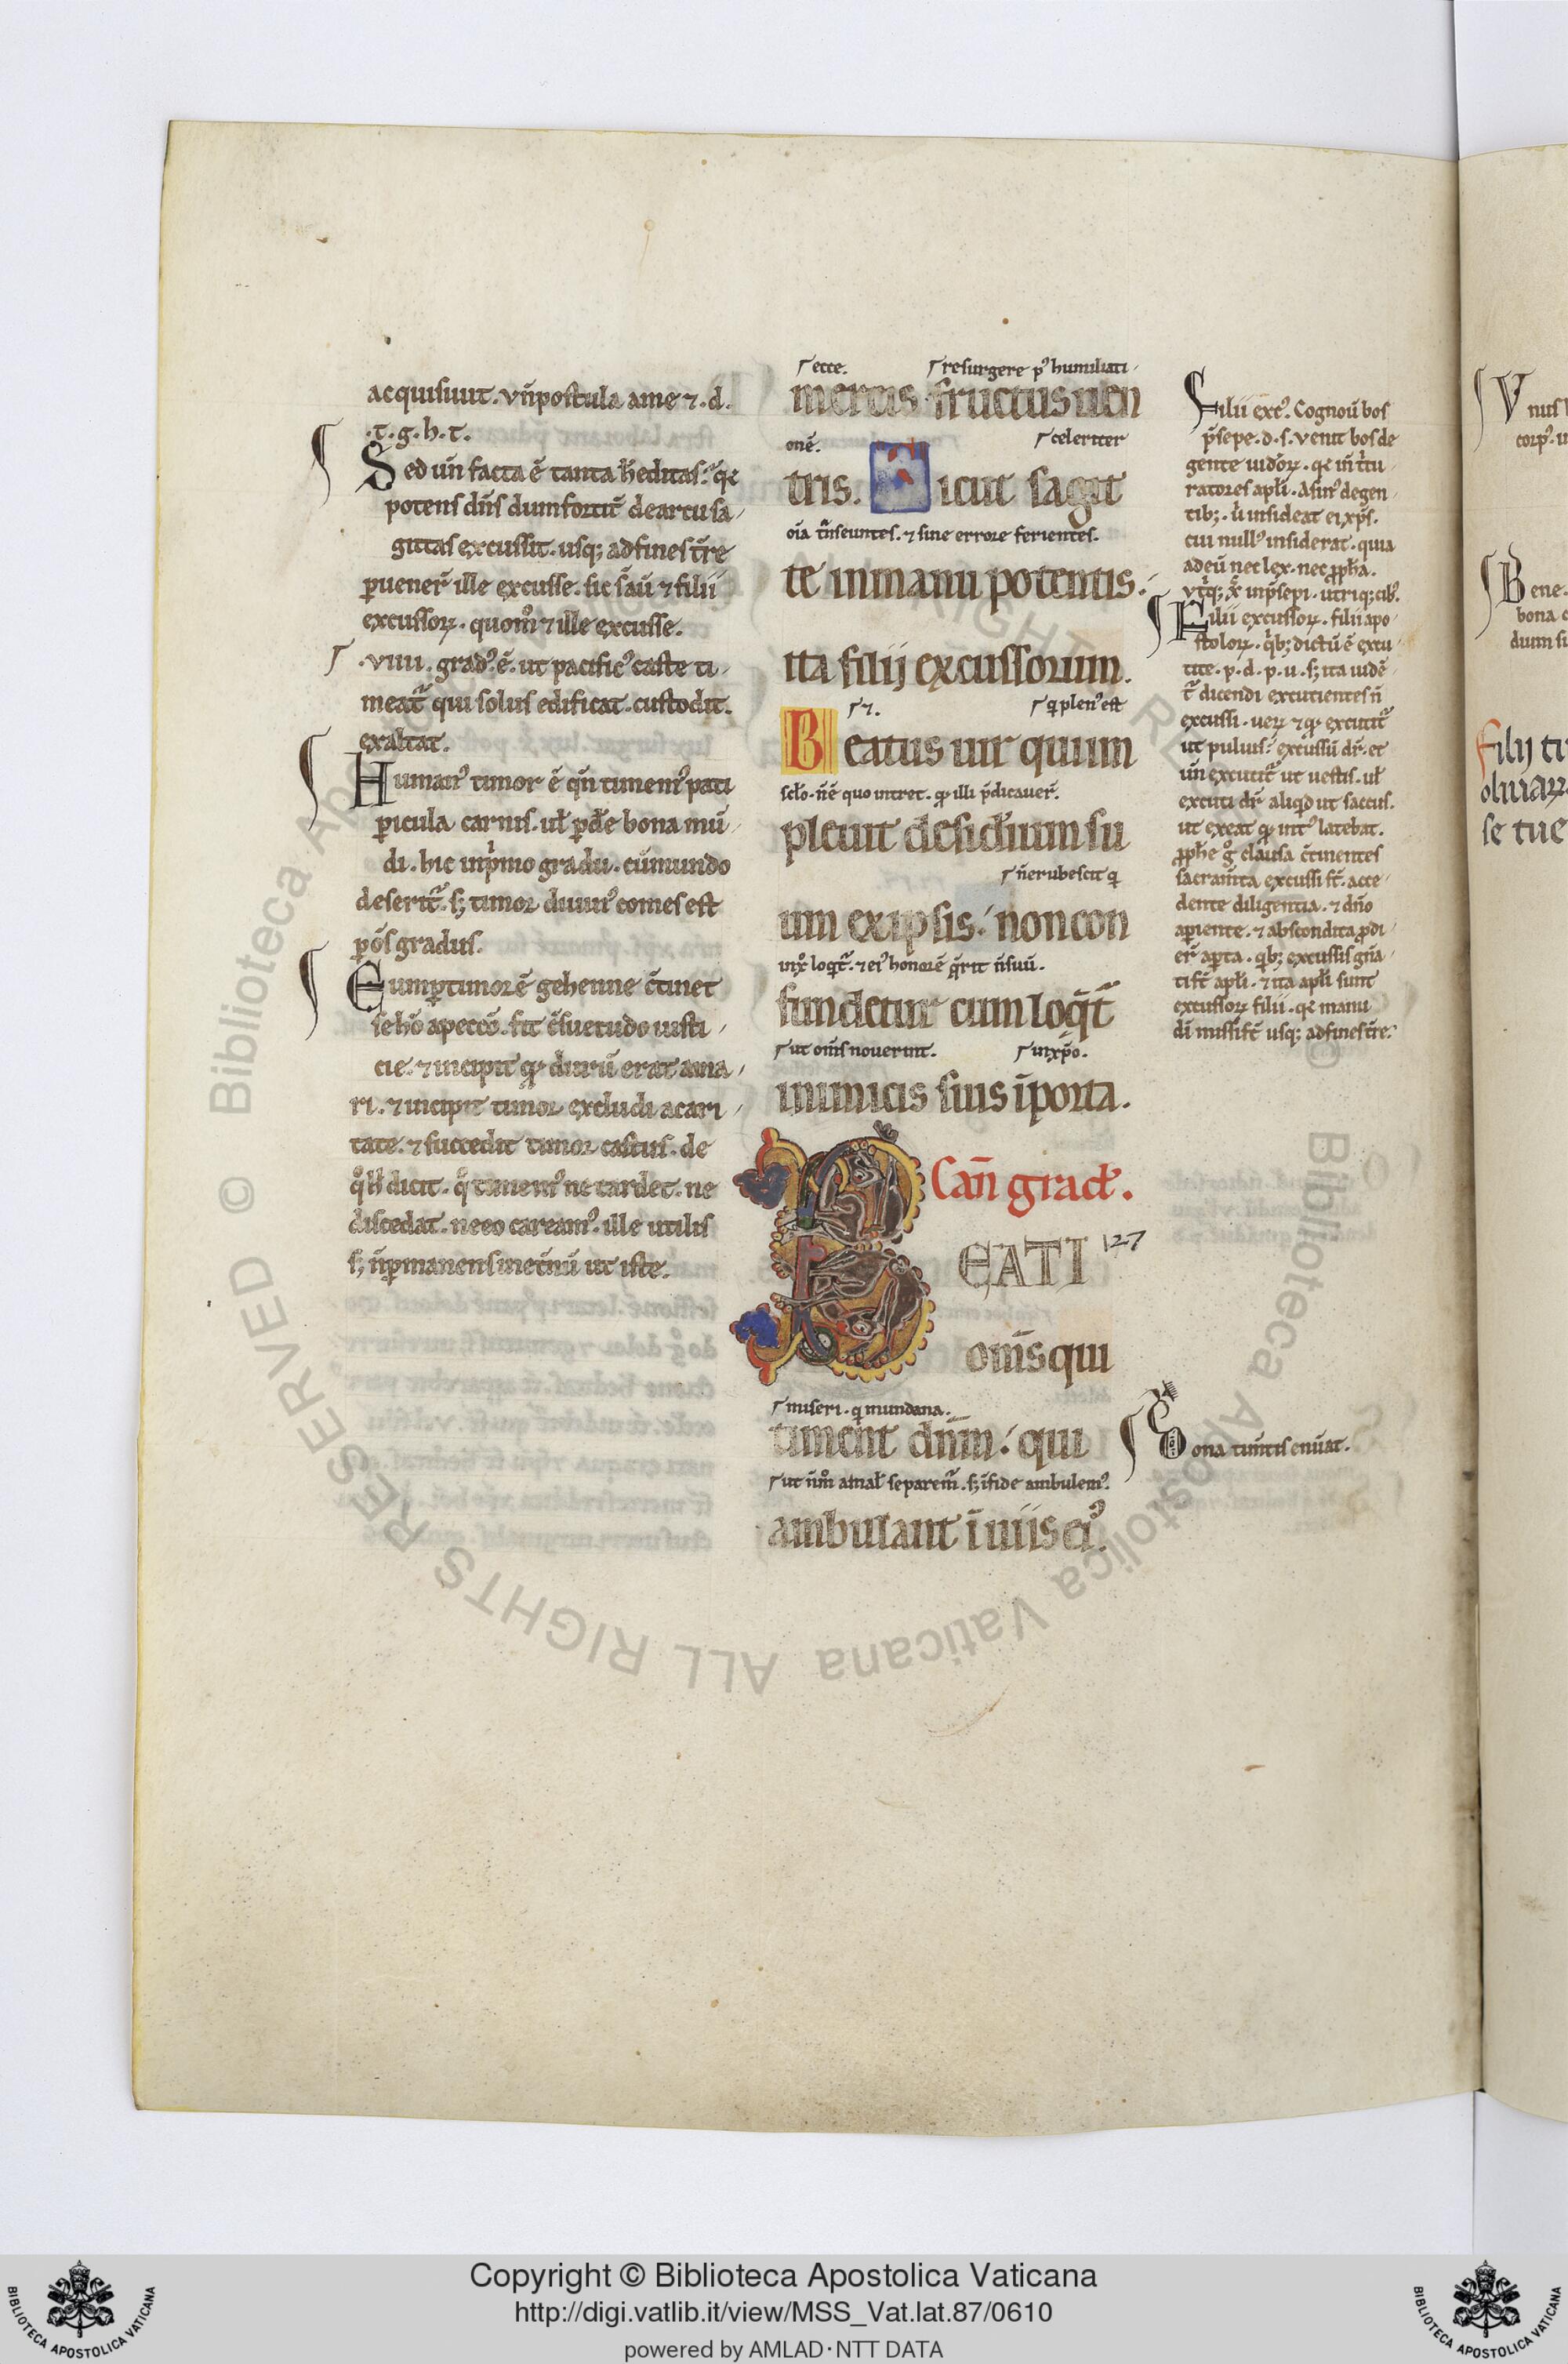 acquisiuit. vn̄ postula a me ⁊. d.
.t. g. h. t.
Sed un̄ facta ē tanta h̄editas. q̄
potens dn̄s dum fortit̄ de arcu sa
gittas excussit. usq; ad fines t̄re
ꝑuener̄ ille excusse. sic s̄aū ⁊ filii
excussoꝝ. quom̊ ⁊ ille excusse.
.viiii. gradꝰ ē. ut pacificꝰ caste ti
meat̄ qui solus edificat. custodit.
exaltat.
Humanꝰ timor ē qn̄ timemꝰ pati
ꝑicula carnis. ul̄ ꝑd̄e bona mū
di. hic in pͥmo gradu. cū mundo
deserit̄. s; timor diuinꝰ comes est
ꝑ ōs gradus.
Cum ꝑ timorē gehenne ꝯtinet
se hō a peccō. fit ꝯsuetudo iusti
cie. ⁊ incipit qd̄ durū erat ama
ri. ⁊ incipit timor excludi a cari
tate. ⁊ succedit timor castus. de
q̊ h̄ dicit. q̊ timemꝰ ne tardet. ne
discedat. ne eo careamꝰ. ille utilis
s; n̄ ꝑmanens in et̄nū ut iste.
ecce. resurgere pꝰ humiliati
mercis fructus uen
onē. celeriter
tris. Sicut sagit
oīa t̄nseuntes. ⁊ sine errore ferientes.
te in manu potentis.
ita filij excussorum.
⁊. q̄ plenꝰ est
Beatus uir qui im
sc̄lo. n̄ ē quo intret. qd̄ illi p̄dicauer̄.
pleuit desid̄ium su
n̄ erubescit q
um ex ipsis. non con
in xͦ loqt̄. ⁊ eiꝰ honorē q̄rit n̄ suū.
fundetur cum loq̄t̄
ut om̄s nouerint. in xp̄o.
inimicis suis ī porta.
Can̄ grad̄.
BEATI 127
om̄s qui
miseri. q̄ mundana.
timent dn̄m. qui
ut n̄ m̊ a mal̄ separem̄. s; ī fide ambulemꝰ.
ambulant ī uiis eiꝰ.
Filii exc̄. Cognoū bos
p̄sepe. d. s. venit bos de
gente iud̄oꝝ. q̄ īn t̄tu
ratores apl̄i. Asinꝰ de gen
tib;. ū insideat ei xp̄s.
cui nullꝰ insiderat. quia
ad eū nec lex. nec ꝓph̄a.
vt̄q; xͥ in p̄sepi. utriq; cibꝰ.
Filii excussoꝝ. filii apo
stoloꝝ. qͥb; dictū ē excu
tite. p. d. p. u. s; ita uidē
t̄ dicendi excutientes n̄
excussi. ueꝝ ⁊ qd̄ excutit̄
ut puluis. excussū dr̄. et
un̄ excutit̄ ut uestis. ul̄
excuti dr̄ aliqd̄ ut saccus.
ut exeat qd̄ intꝰ latebat.
ꝓph̄e g̊ clausa ꝯtinentes
sacram̄ta excussi st̄. acce
dente diligentia. ⁊ dn̄o
aꝑiente. ⁊ abscondita ꝓdi
er̄ aꝑta. qͥb; excussis gn̄a
ti st̄ apl̄i. ⁊ ita apl̄i sunt
excussoꝝ filii. q̄ manu
dī missi st̄ usq; ad fines t̄re.
Bona tim̄tis enūat.
V nus
corpꝰ
Bene.
bona
dum
filij tu
oliuaꝝ
se tue
Copyright © Biblioteca Apostolica Vaticana
http://digi.vatlib.it/view/MSS_Vat.lat.87/0610
powered by AMLAD·NTT DATA
BIBLIOTECA APOSTOLICA VATICANA
BIBLIOTECA APOSTOLICA VATICANA
© Biblioteca Apostolica Vaticana ALL RIGHTS RESERVED